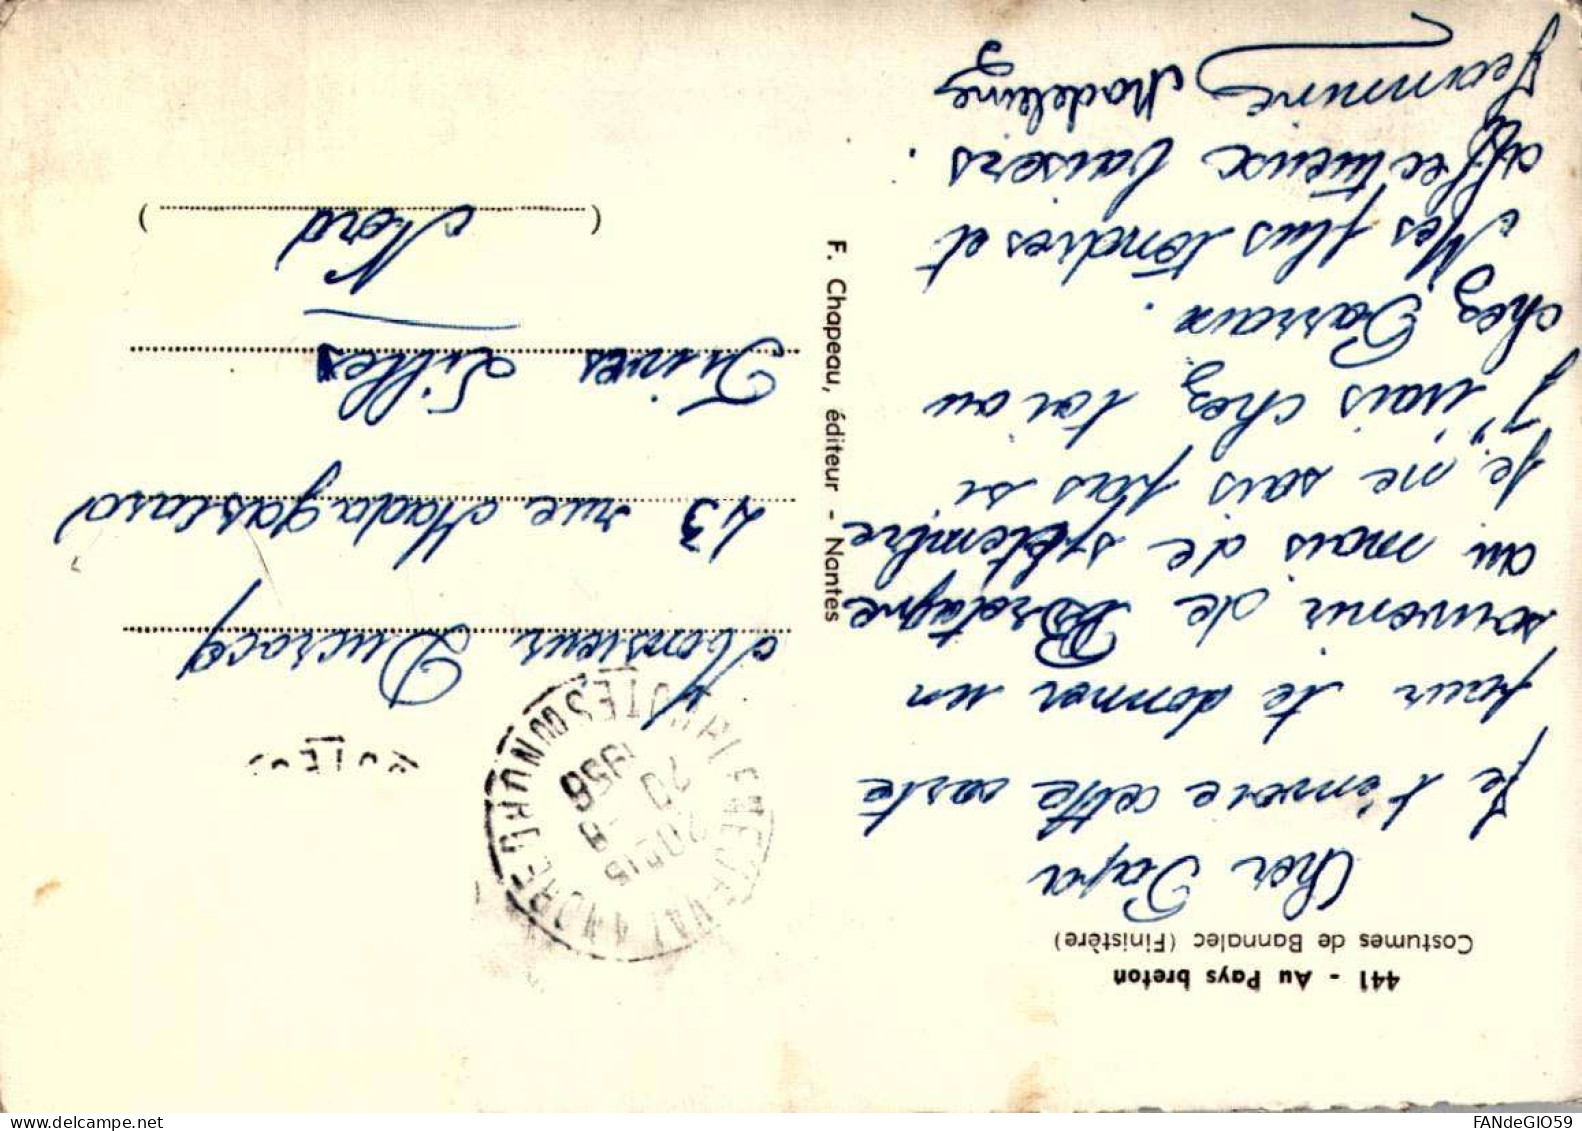 441 - Au Pays breton
Costumes de Bannalec (Finistère)
Cher Papa
Je t'envoie cette carte
pour te donner un
souvenir de Bretagne
au mois de septembre
Je ne sais pas si
J'irais chez toi ou
chez Parrain.
Mes plus tendres et
affectueux baisers.
Jeannine Madeleine
F. Chapeau, éditeur - Nantes
20H15
20 - 8
1956
Monsieur Ducrocq
43 rue Madagascard
Fives Lilles
Nord
FANdeGIO59